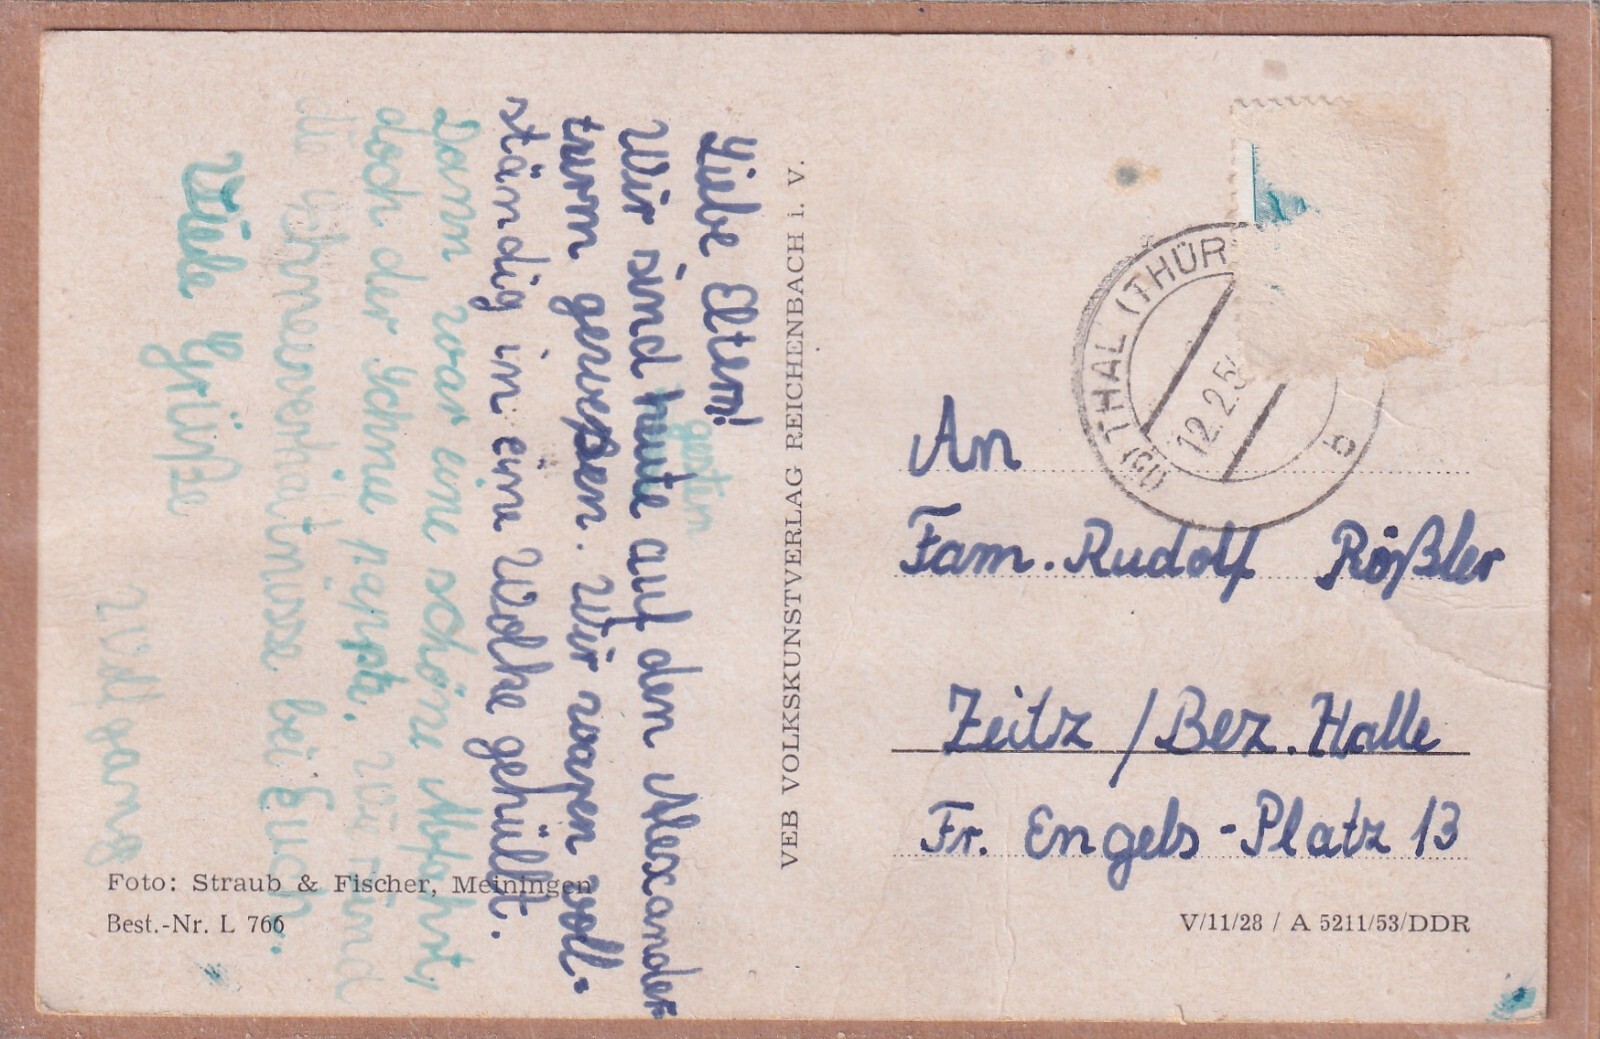 Liebe Eltern!
gestern
Wir sind heute auf den Alexander-
turm gewesen. Wir waren voll-
ständig in eine Wolke gehüllt.
Dann war eine schöne Abfahrt,
doch der Schnee pappte. Wie sind
die Schneeverhältnisse bei Euch.
Viele Grüße
Wolfgang
Foto: Straub & Fischer, Meiningen
Best.-Nr. L 766
VEB VOLKSKUNSTVERLAG REICHENBACH i. V.
THAL (THÜR
12.2.5
b
An
Fam. Rudolf Rößler
Zeitz / Bez. Halle
Fr. Engels-Platz 13
V/11/28 / A 5211/53/DDR